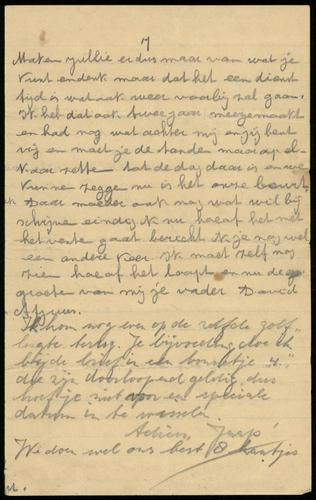 7
Maken jullie er dus maar van wat je
kunt en denk maar dat het een dienst
tijd is wat ook weer voorbij zal gaan.
Ik heb dat ook twee jaar meegemaakt
en had nog wat achter mij en jij bent
vrij en moet je de tanden maar op el-
kaar zette tot de dag daar is en we
kunne zegge nu is het onze beurt
Daar moeder ook nog wat wil bij
schrijve eindig ik nu hoe of het met
het vente gaat bericht ik je nog wel
een andere keer. Ik moet zelf nog
zien hoe of het loopt en nu de
groeten van mij je vader David
Ik kom nog even op de zelfde golf-
lengte terug. Je bijvoeding doe ik
bij de brief in een bonnetje
die zijn doorloopend geldig, dus
hoef je niet voor een speciale
datum in te wisselen.
Adieu, Jaap
We doen wel ons best